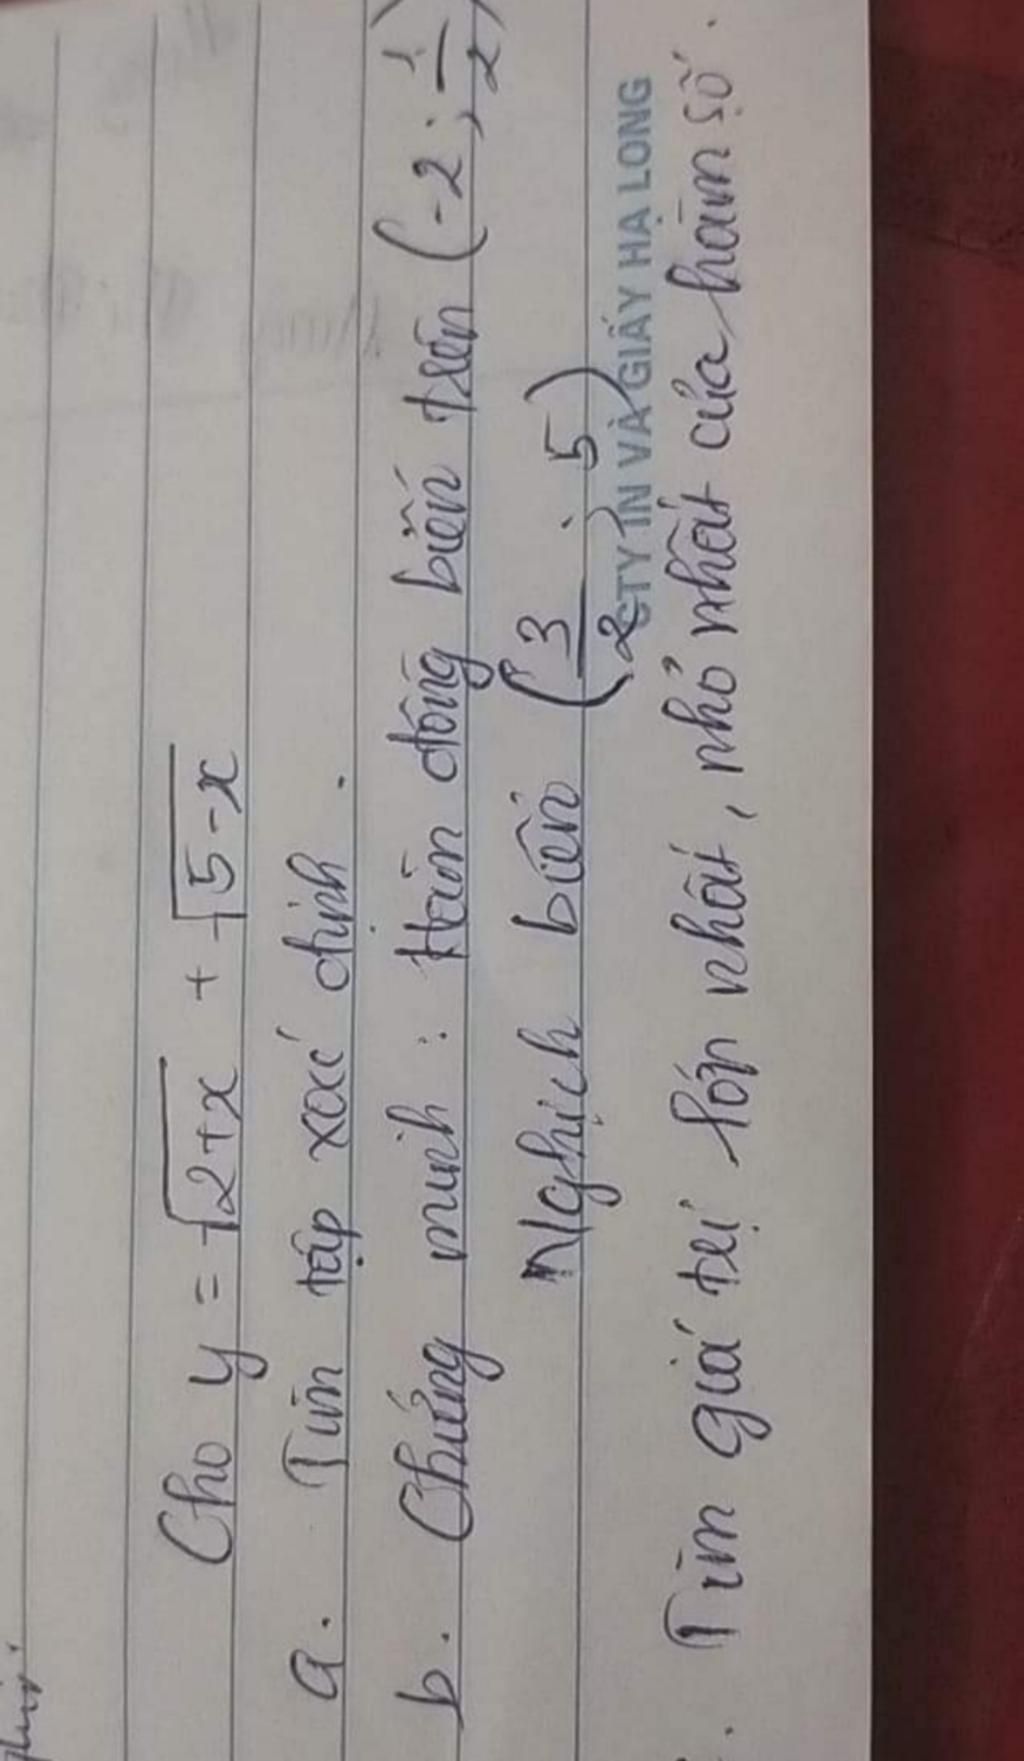 Cho y = √2+x + √5-x
a. Tìm tập xác định.
b. Chứng minh: Hàm đồng biến trên (-2; 1/2)
Nghịch biến (3/2; 5)
CTY IN VÀ GIẤY HẠ LONG
. Tìm giá trị lớn nhất, nhỏ nhất của hàm số.